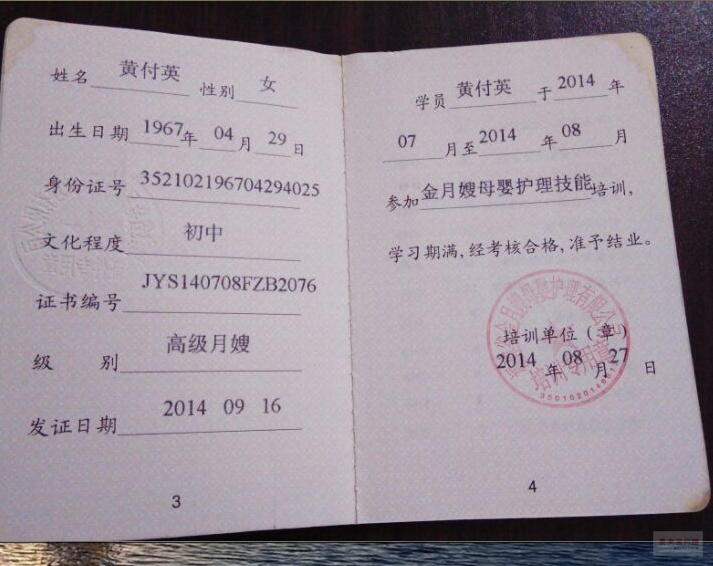 姓名 黄付英 性别 女
出生日期 1967年 04月 29日
身份证号 352102196704294025
文化程度 初中
证书编号 JYS140708FZB2076
级 别 高级月嫂
发证日期 2014 09 16
3
学员 黄付英 于2014年
07月至2014年08月
参加金月嫂母婴护理技能培训，
学习期满，经考核合格，准予结业。
培训单位（章）
2014年08月27日
培训专用章
4